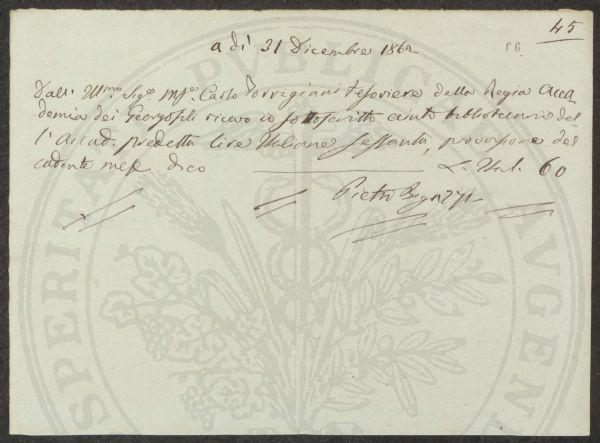 45
a dì 31 Dicembre 1862
Dall' Ill.mo Sig.e M.se Carlo Torrigiani Tesoriere della Regia Acca
demia dei Georgofili ricevo io sottoscritto aiuto bibliotecario del
l'Accad. predetta lire Italiane sessanta, provvisione del
cadente mese dico L. Ital. 60
Pietro Bigazzi
PROSPERITATI PUBLICAE AUGENDAE